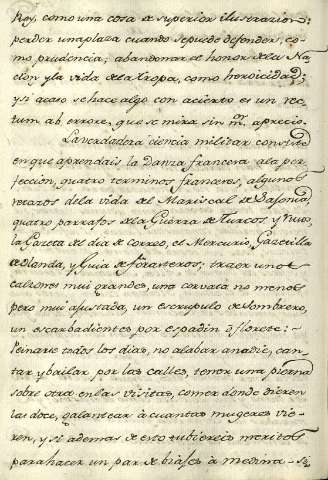 Rey, como una cosa de superior ilustrazion:
perder una plaza cuando se puede defender, co-
mo prudencia; abandonar el honor de la Na
cion y la vida de la tropa, como heroicidad;
y si acaso se hace algo con acierto es un rec-
tum ab errore, que se mira sin mr. aprecio.
La verdadera ciencia militar consiste
en que aprendais la Danza francesa a la per-
feccion, quatro terminos franceses, algunos
retazos de la vida del Mariscal de Sasonia,
quatro parrafos de la Guerra de Turcos y Rusos,
la Gazeta del dia de Correo, el Mercurio, Gazetilla
de Olanda, y Guia de forasteros; traer unos
calzones mui grandes, una corvata no menos
pero mui ajustada, un escrupulo de sombrero,
un escarbadientes por espadin ó florete:
Peinarse todos los dias, no alabar a nadie, can-
tar y bailar por las calles, tener una pierna
sobre otra en las visitas, comer donde dieren
las doce, galantear á cuantas mugeres vie-
ren, y si ademas de esto tubiereis meritos
para hacer un par de viajes á medina-si